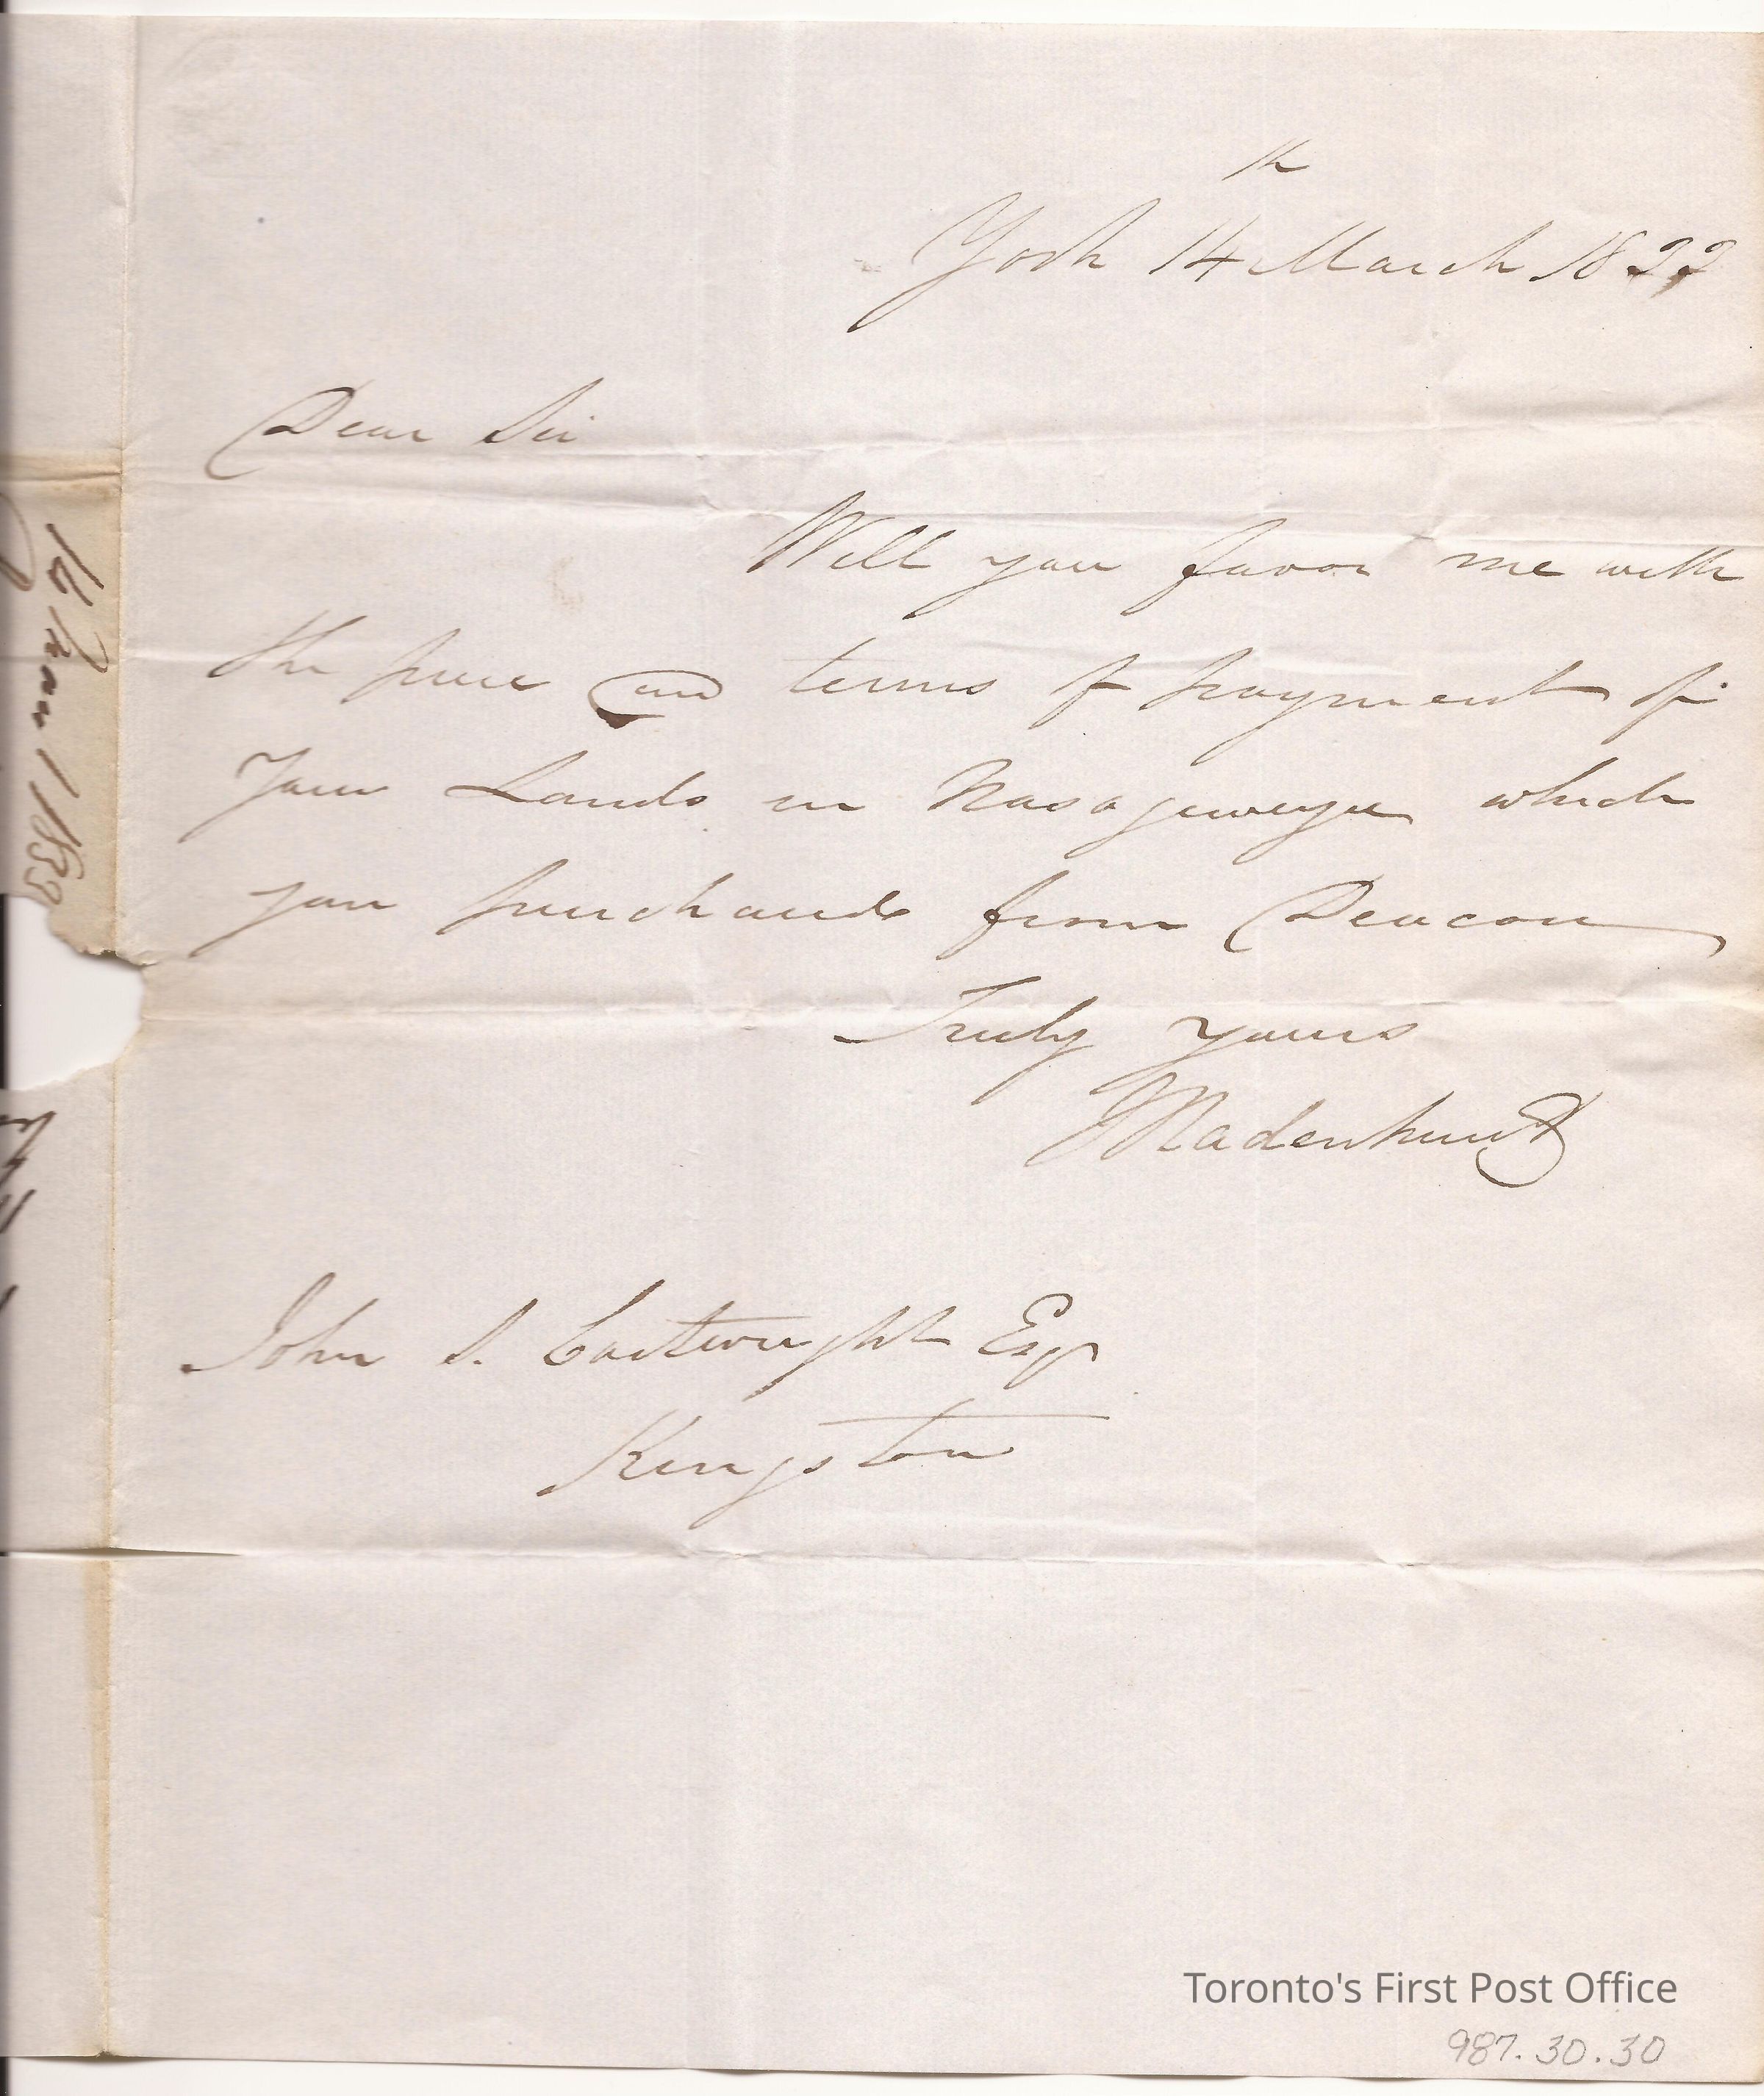 York 14th March 1833
Dear Sir
Will you favor me with
the price and terms of payment of
your Lands in Nasagaweya which
you purchased from Deacon
Truly yours
J M A Cadenhurst
John S. Cartwright Esqr
Kingston
1833
Toronto's First Post Office
987.30.30